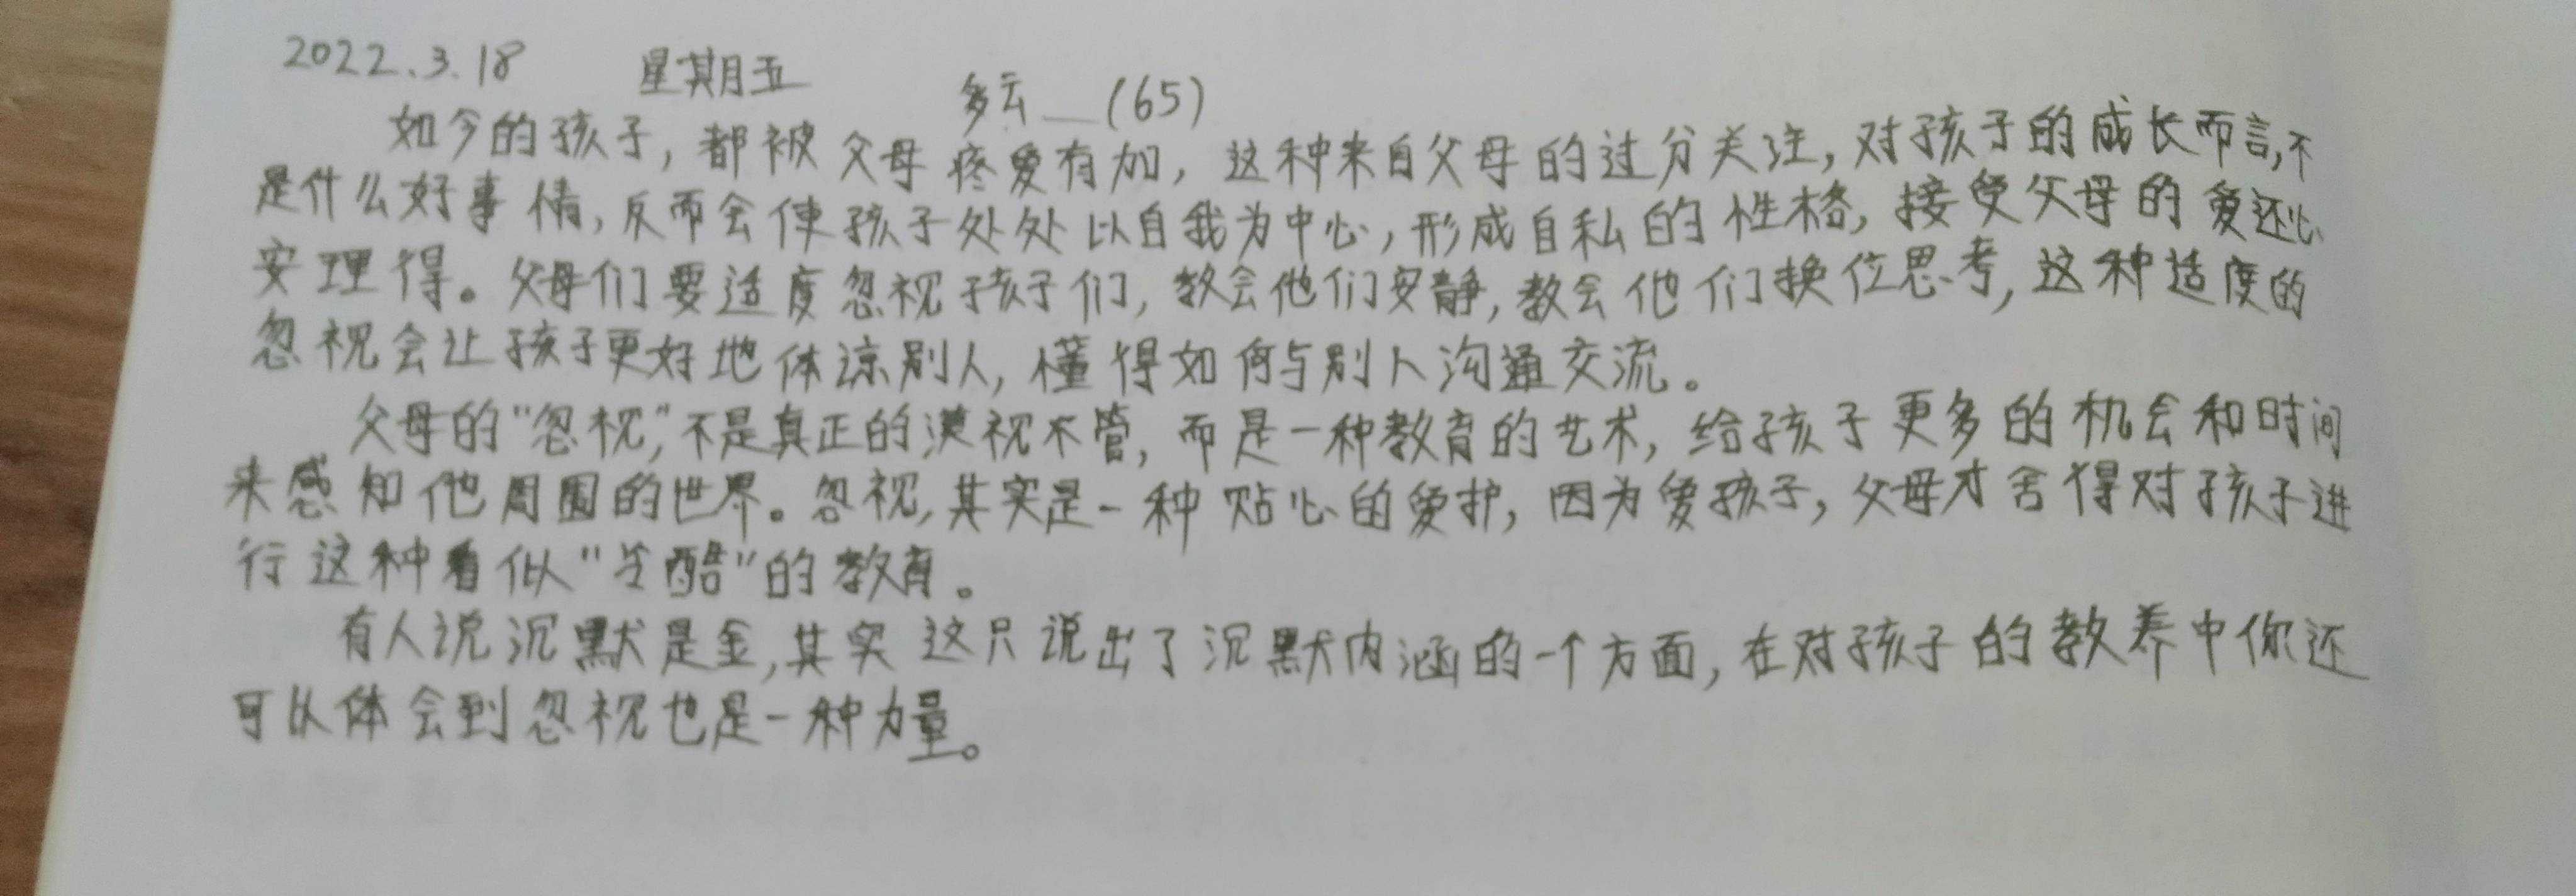 2022.3.18 星期五 多云 (65)
如今的孩子，都被父母疼爱有加，这种来自父母的过分关注，对孩子的成长而言，不
是什么好事情，反而会使孩子处处以自我为中心，形成自私的性格，接受父母的爱还心
安理得。父母们要适度忽视孩子们，教会他们安静，教会他们换位思考，这种适度的
忽视会让孩子更好地体谅别人，懂得如何与别人沟通交流。
父母的“忽视”，不是真正的漠视不管，而是一种教育的艺术，给孩子更多的机会和时间
来感知他周围的世界。忽视，其实是一种贴心的爱护，因为爱孩子，父母才舍得对孩子进
行这种看似“冷酷”的教育。
有人说沉默是金，其实这只说出了沉默内涵的一个方面，在对孩子的教养中你还
可以体会到忽视也是一种力量。